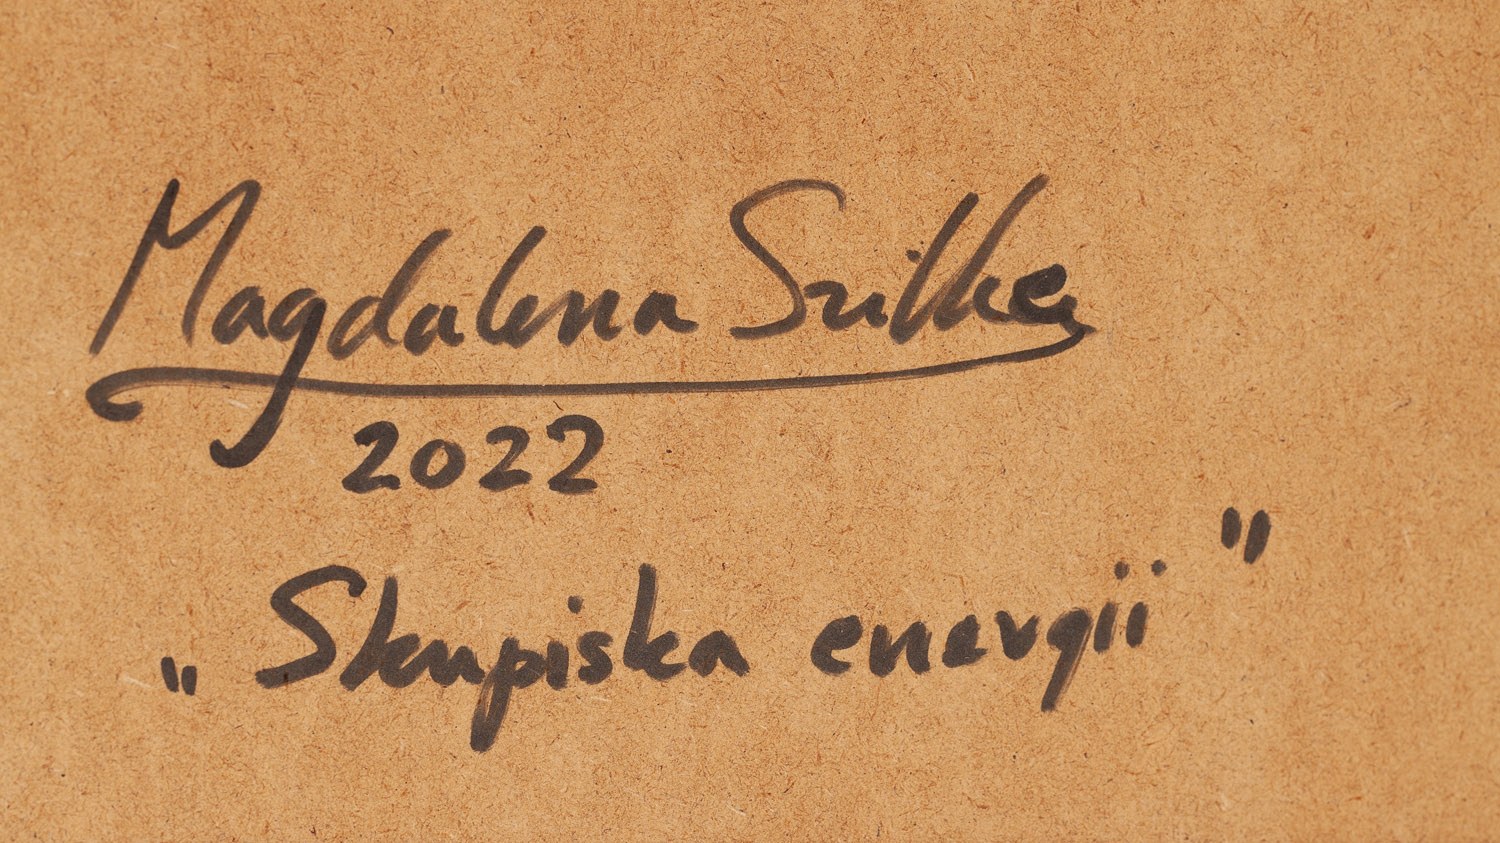 Magdalena Szilke
2022
„Skupiska energii"